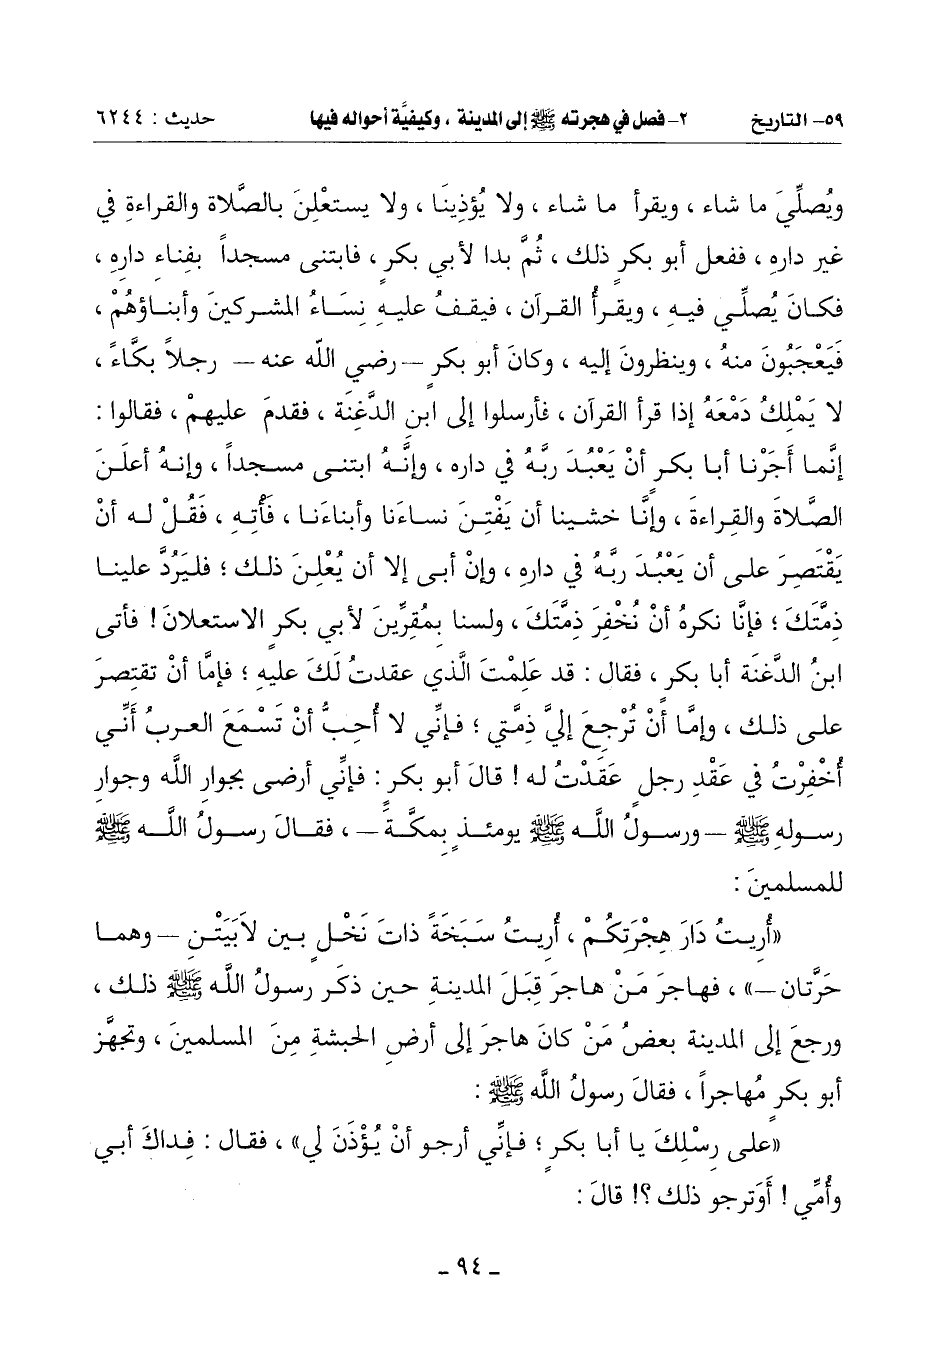 ٥٩- التاريخ ٢- فصل في هجرته ﷺ إلى المدينة ، وكيفيَّة أحواله فيها حديث : ٦٢٤٤
ويُصلِّيَ ما شاء ، ويقرأ ما شاء ، ولا يُؤذِينَا ، ولا يستعْلِنَ بالصَّلاة والقراءةِ في
غير دارِه ، ففعل أبو بكرٍ ذلك ، ثُمَّ بدا لأبي بكرٍ ، فابتنى مسجداً بفِناءِ دارِهِ ،
فكـانَ يُصلِّـي فيـهِ ، ويقـرأُ القـرآن ، فيقـفُ عليـهِ نِسَـاءُ المشـركينَ وأبنـاؤهُمْ ،
فَيَعْجَبُونَ منهُ ، وينظرونَ إليه ، وكانَ أبو بكرٍ –رضي اللَّه عنه– رجلاً بكَّاءً ،
لا يَمْلِكُ دَمْعَهُ إذا قرأ القرآن ، فأرسلوا إلى ابن الدَّغِنَة ، فقدمَ عليهمْ ، فقالوا :
إنَّما أَجَرْنا أبا بكرٍ أنْ يَعْبُدَ ربَّهُ في داره ، وإنَّهُ ابتنى مسجداً ، وإنهُ أعلَنَ
الصَّلاةَ والقِراءةَ ، وإنَّا خشينا أن يَفْتِنَ نساءَنا وأبناءَنا ، فَأْتِهِ ، فَقُلْ له أنْ
يَقْتَصِرَ على أن يَعْبُدَ ربَّهُ في دارِه ، وإنْ أبى إلا أن يُعْلِنَ ذلك ؛ فليَرُدَّ علينا
ذِمَّتَكَ ؛ فإنَّا نكرهُ أنْ نُخْفِرَ ذِمَّتَكَ ، ولسنا بمُقِرِّينَ لأبي بكرٍ الاستعلانَ ! فأتى
ابنُ الدَّغِنَة أبا بكرٍ ، فقال : قد عَلِمْتَ الَّذي عقدتُ لَكَ عليهِ ؛ فإمَّا أنْ تقتصِرَ
على ذلك ، وإمَّا أنْ تُرْجِعَ إليَّ ذِمَّتي ؛ فإنِّي لا أُحِبُّ أنْ تَسْمَعَ العربُ أَنِّي
أُخْفِرْتُ في عَقْدِ رجلٍ عَقَدْتُ له ! قالَ أبو بكر : فإنِّي أرضى بجوارِ اللَّه وجوارِ
رسولهِ ﷺ –ورسولُ اللَّه ﷺ يومئذٍ بمكَّةَ– ، فقالَ رسولُ اللَّه ﷺ
للمسلمينَ :
«أُريتُ دَارَ هِجْرَتِكُمْ ، أُريتُ سَبَخَةً ذاتَ نَخْلٍ بين لابَتَيْنِ –وهما
حَرَّتان–» ، فهاجرَ مَنْ هاجرَ قِبَلَ المدينةِ حين ذكَر رسولُ اللَّه ﷺ ذلك ،
ورجعَ إلى المدينة بعضُ مَنْ كانَ هاجرَ إلى أرضِ الحبشةِ مِنَ المسلمينَ ، وتجهَّز
أبو بكرٍ مُهاجراً ، فقالَ رسولُ اللَّه ﷺ :
«على رِسْلِكَ يا أبا بكرٍ ؛ فإنِّي أرجو أنْ يُؤْذَنَ لي» ، فقال : فِداكَ أبي
وأُمِّي ! أَوَترجو ذلك ؟! قالَ :
- ٩٤ -